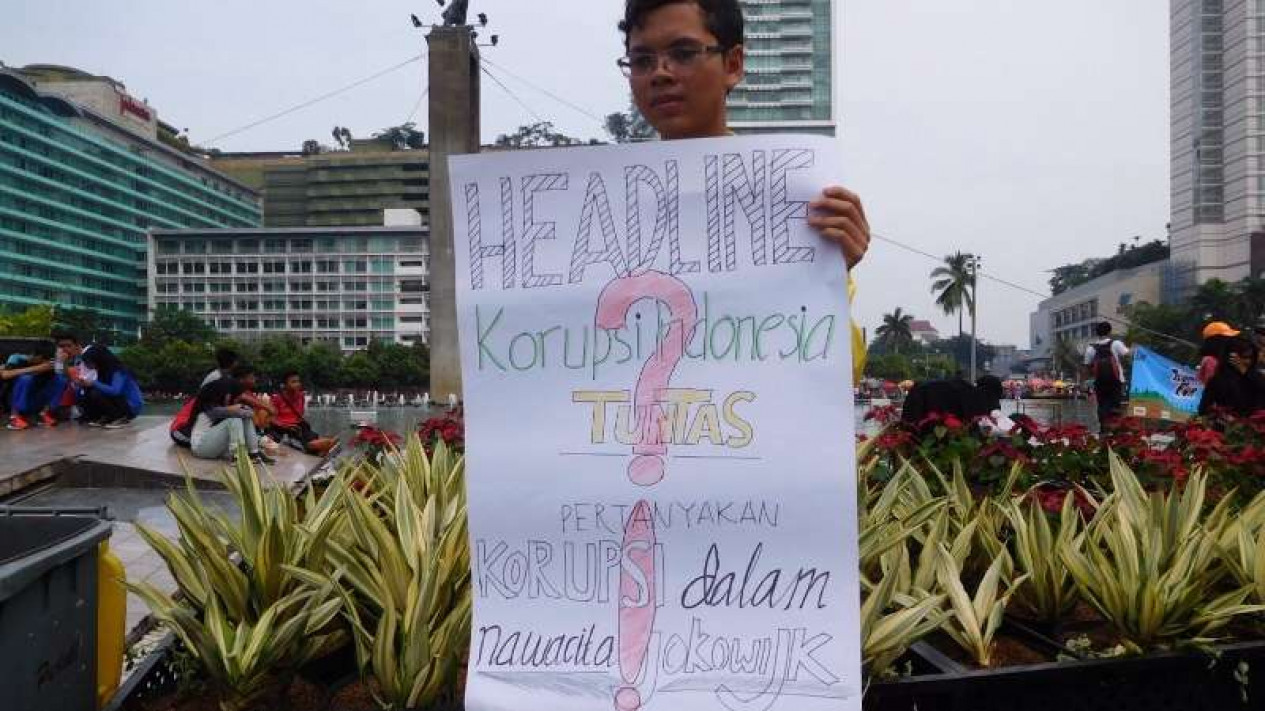 HEADLINE
Korupsi Indonesia
TUNTAS
?
PERTANYAKAN
KORUPSI dalam
nawacita ! jokowijk